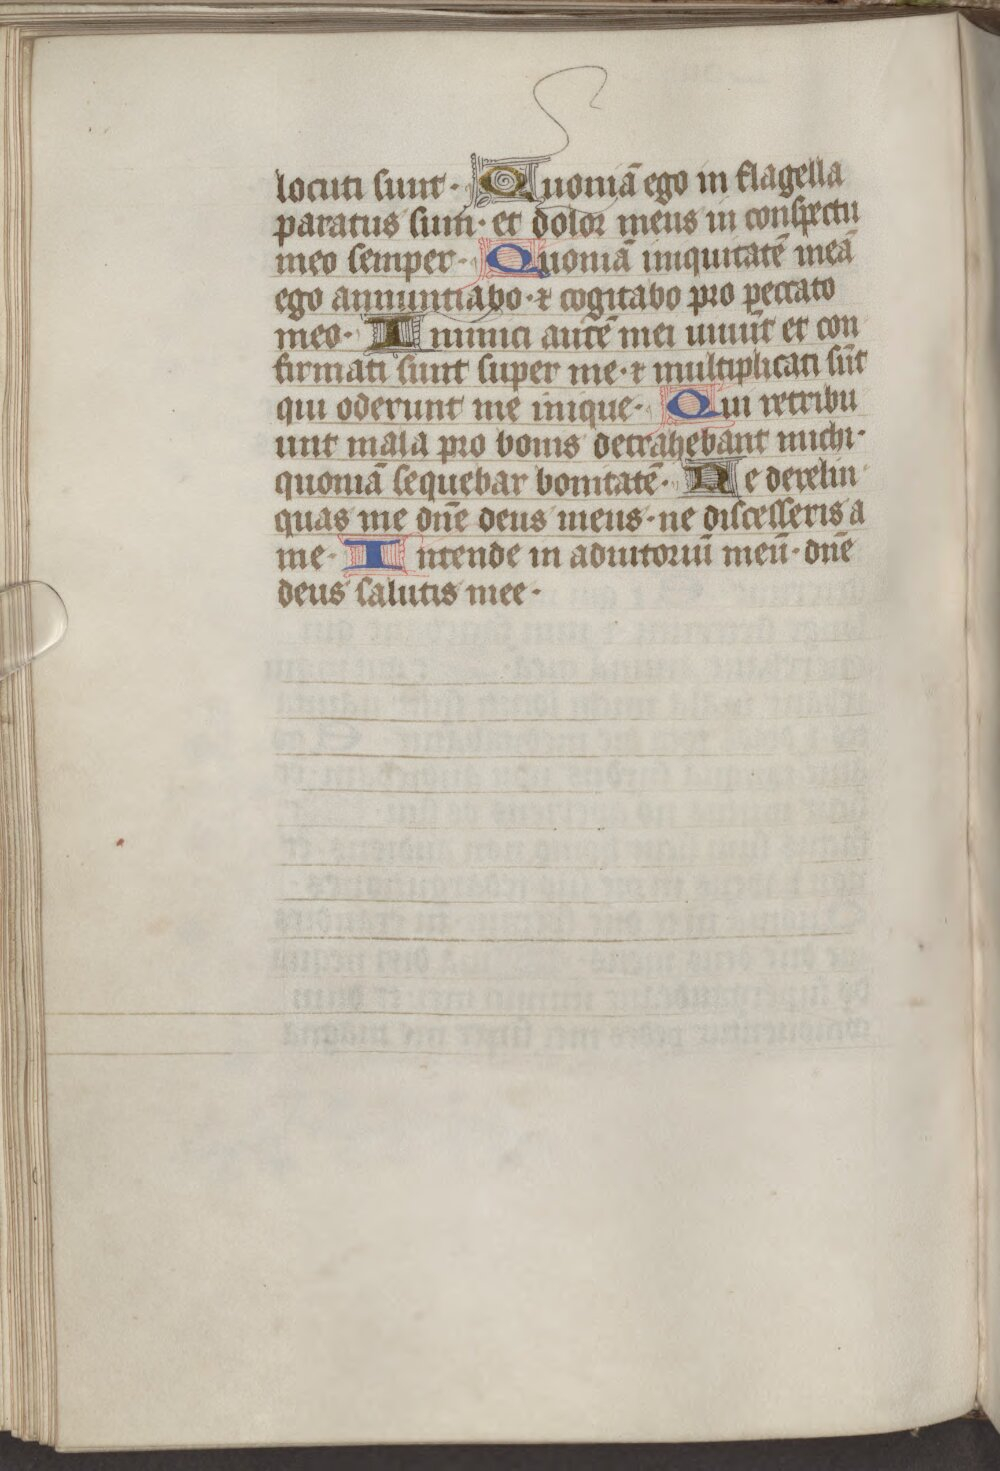 locuti sunt· Quoniā ego in flagella
paratus sum· et dolor meus in conspectu
meo semper· Quoniā iniquitatē meā
ego annuntiabo· ⁊ cogitabo pro peccato
meo· Inimici autē mei uiuūt et con
firmati sunt super me· ⁊ multiplicati sūt
qui oderunt me inique· Qui retribu
unt mala pro bonis detrahebant michi·
quoniā sequebar bonitatē· Ne derelin
quas me dn̄e deus meus· ne discesseris a
me· Intende in adiutoriū meū· dn̄e
deus salutis mee·